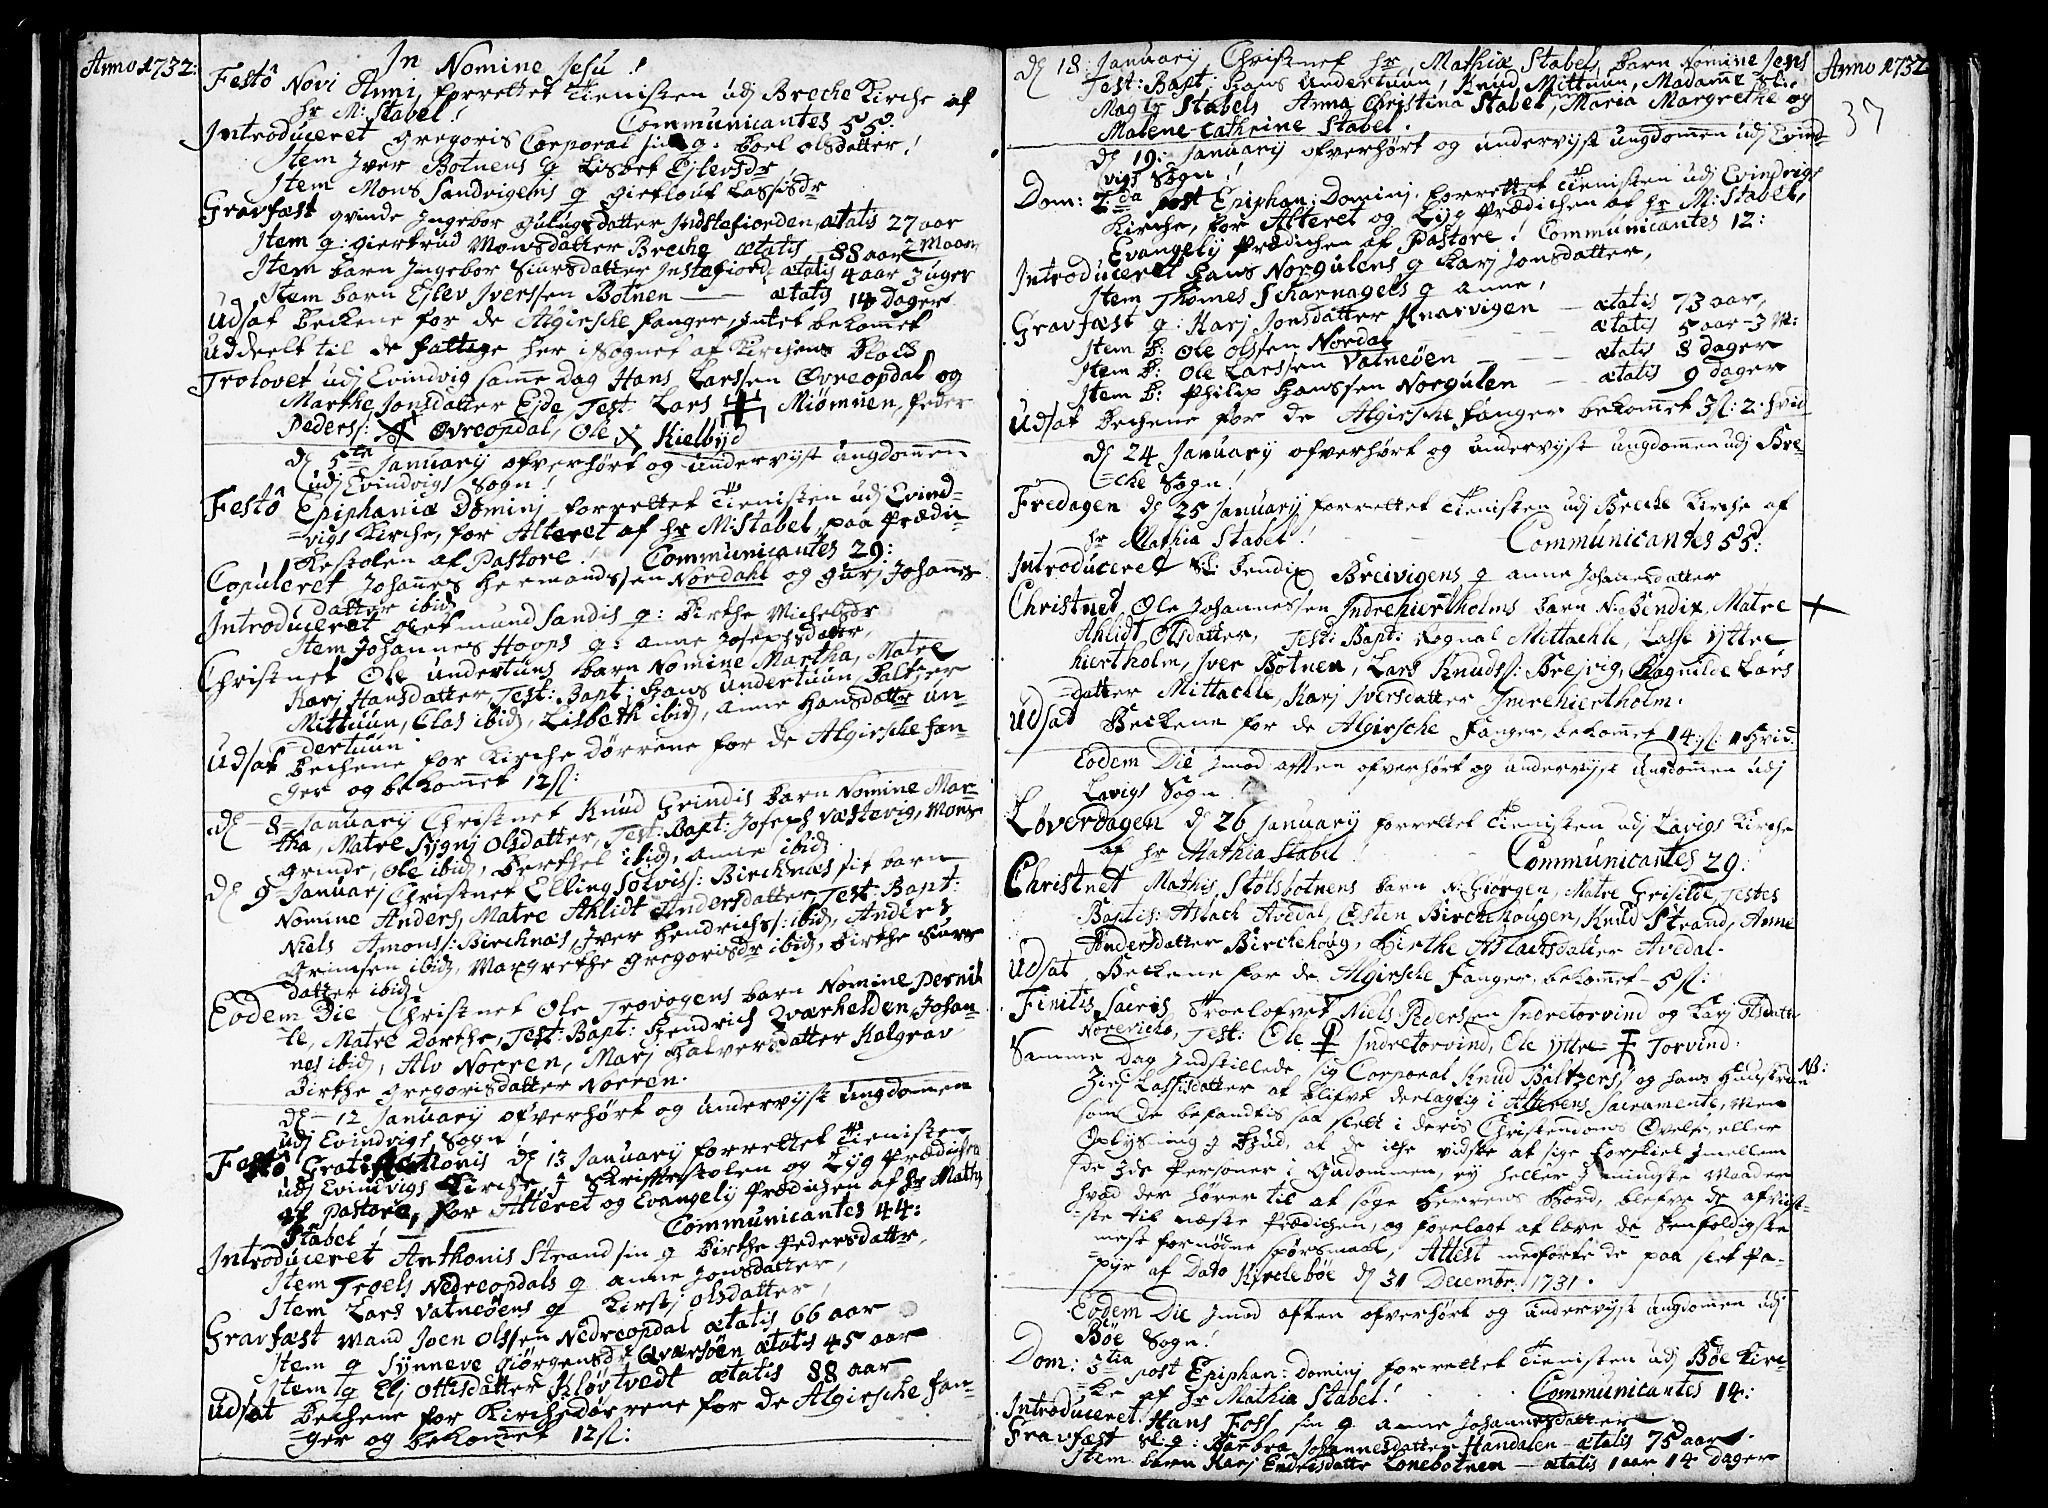 Anno 1732:
In Nomine Jesu!
Festô Novi Anni, forrettet Tienisten udj Breche Kirche af
hr M: Stabel! Communicantes 55:
Introduceret Gregoris Corporal sin q: Boel olsdatter!
Item Jver Botnens q Lisbet Ejlevsdr
Item Mons Sandvigens q Giertlout Lassisdr
Gravfæst qvinde Jngebor Gulugsdatter Jndstefiorden, ætatis 27 aar
Item q: giertrud Monsdatter Breche ætatis 88 aar 2 Maan
Item barn Jngebor Siursdatter Jnstefiord ætatis 4 aar 3 uger
Item barn Ejlev Jverssen Botnen — ætatis 14 dager
Udsat Beckene for de Algirsche fanger, intet bekomet
uddeelt til de fattige her i Sognet af Kirchens Block
Trolovet udj Evindvig same dag Hans Larssen Øvreopdal og
Marthe Jonsdatter Ejde, Test: Lars Miømnen, Peder
Peders: Øvreopdal, Ole Kielbyd
d 5te January ofverhørt og undervyst ungdomen
udj Evindvigs Sogn!
Festô Epiphaniæ Dominj forrettet Tienisten udj Evind-
=vigs Kirche, for Alteret af hr M: Stabel, paa Prædi-
kestolen af Pastore! Communicantes 29:
Copuleret Johanes Hermandssen Nordahl og Gurj Johanes
datter ibid
Introduceret Olef mund Sandis q: Birthe Michelsdr
Item Johannes Hoops q: anne Josephsdatter,
Christnet Ole Undertuns barn Nomine Martha, Matre
Karj Hansdatter, Test: Bapt: Hans Undertuun, Baltzer
Mittuun, Clas ibid, Lisbeth ibid, anne Hansdattr un-
=dertuun
Udsat Bechene for Kirche dørrene for de Algirsche fan-
ger og bekomet 12 ſ:
d 8 January Christnet Knud Grindis barn Nomine Mar-
tha, Matre Sygnj Olsdatter, Test: Bapt: Joseph Væstevig, Mons
Grinde, Ole ibid, Berthel ibid, anne ibid.
d 9 Januarj Christnet Elling Solviss: Bircknæs sit barn
Nomine Anders, Matre Ahlidt Andersdatter, Test: Bapt:
Niels Amons: Bircknæs, Jver Hendrichss: ibid, Anders
Grimsen ibid, Margrethe gregorisdr ibid, Birthe Siurs
datter ibid
Eodem Die Christnet Ole Trovogens barn Nomine Pernil
le, Matre Dorthe, Test: Bapt: Hendrich Qværhelden, Johan-
nes ibid, Alv Norren, Marj Halversdatter Kalgrav
Birthe Gregorisdatter Norren.
d 12 January ofverhørt og undervyst ungdomen
udj Evindvigs Sogn!
Festô d 13 January forrettet Tienisten
udj Evindvigs Kirche, i Skriftestolen og Lyg Prædichen
af Pastore, for Alteret og Evangely Prædichen af hr Mathi
Stabel! Communicantes 44:
Introduceret Anthonis Strand sin q Birthe Pedersdattr,
Item Troels Nedreopdals q anne Jonsdatter,
Item Lars Vatneøens q Kirstj olsdatter,
Gravfæst Mand Joen Olssen Nedreopdal ætatis 66 aar
Item q Synneve Giørgensdr Qværøen ætatis 45 aar
Item q Elj Ottisdatter Kløvtvedt ætatis 88 aar
Udsat Bechene for Kirchedørrene for de Algirsche fan-
ger og bekomet 12 ſ:
Anno 1732
37
d 18 January Christnet hr Mathiæ Stabels barn Nomine Jens
Test: Bapt: Hans Undertuun, Knud Mittuun, Madame
Magr Stabels, Anna Christina Stabel, Maria Margrethe og
Malene Cathrine Stabel.
d 19: January ofverhørt og undervyst ungdomen udj Evind-
vigs Sogn!
Dom: 2da post Epiphan: Dominj forrettet Tienisten udj Evindvigs
Kirche, for Alteret og Lyg Prædichen af hr M: Stabel,
Evangely Prædichen af Pastore! Communicantes 12:
Introduceret Hans Norgulens q Karj Jonsdatter,
Item Thomes Scharnagels q anne,
Gravfæst q: Karj Jonsdatter Knarvigen — ætatis 73 aar,
Item B: Ole Olssen Nordal ætatis 5 aar 3 M:
Item B: Ole Larssen Vatneøen — ætatis 8 dager
Item B: Philip Hanssen Norgulen — ætatis 9 dager
Udsat Bechene for de Algirsche fanger bekomet 3 ſ: 2 hvid
d 24 January ofverhørt og undervyst ungdomen udj Bre-
=che Sogn!
Fredagen d 25 January forrettet Tienisten udj Breche Kirche af
hr Mathia Stabel! Communicantes 55:
Introduceret Bendix Breivigens q anne Johanesdatter
Christnet Ole Johannessen Indrehiertholms barn N: Bendix, Matre
Ahlidt Olsdatter, Test: Bapt: Rognal Mittachle, Lasse Yttre
hiertholm, Jver Botnen, Lars Knuds: Brejvig, Ragnilde Lars
=datter Mittachle, Karj Jversdatter Inrehiertholm.
Udsat Beckene for de Algirsche Fanger, bekomet 14 ſ: 1 hvid:
Eodem Die Jmod aften ofverhørt og undervyst ungdomen udj
Lavigs Sogn!
Løverdagen d 26 January forrettet Tienisten udj Lavigs Kirche
af hr Mathia Stabel! Communicantes 29:
Christnet Mathis Stølsbotnens barn N: Giørgen, Matre Grisilde, Testes
Baptis: Aslach Avedal, Østen Birchehougen, Knud Strand, Anne
Andersdatter Birckehoug, Birthe Aslachsdatter Avedal.
Udsat Beckene for de Algirsche Fanger, bekomet 5 ſ:
Finitis Sacris, Troelofvet Niels Pedersen Indretorvind og Karj
Norevicks, Test: Ole Indretorvind, Ole Yttre Torvind.
Samme Dag Indstillede sig Corporal Knud Baltzers: og hans Hustrue NB:
Lassisdatter at blifve deelagtig i Alterens Sacramente, Men
som de befandtis saa slett i deris Christendoms Øvelse, eller
Oplysning i Gud, at de icke vidste at sige forskiel imellem
de 3de Personer i Gudommen, ey heller i mindste Maader
hvad der hører til at søge Herrens Bord, blefve de afviist-
ste til næste Prædichen, og forelagt at lære de Eenfoldigste
mest fornødne spørsmaal, Attest medførte de paa slet Pa-
pyr af Dato Kyrckebøe d 31 Decembr 1731.
Eodem Die Jmod aften ofverhørt og undervyst ungdomen udj
Bøe Sogn!
Dom: 3tia post Epiphan: Dominj forrettet Tienisten udj Bøe Kir-
ke af hr Mathia Stabel! Communicantes 14:
Introduceret Hans Foss sin q anne Johannesdatter
Gravfæst q: Barbra Johannesdatter Handalen ætatis 75 aar.
Item barn Karj Endresdattr Lonebotnen — ætatis 1 aar 14 dager